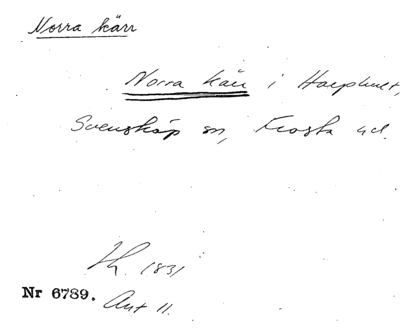 Norra kärr
Norra kärr i Harphult,
Svensköp sn, Frosta hd.
1831
Nr 6789. Ant 11.